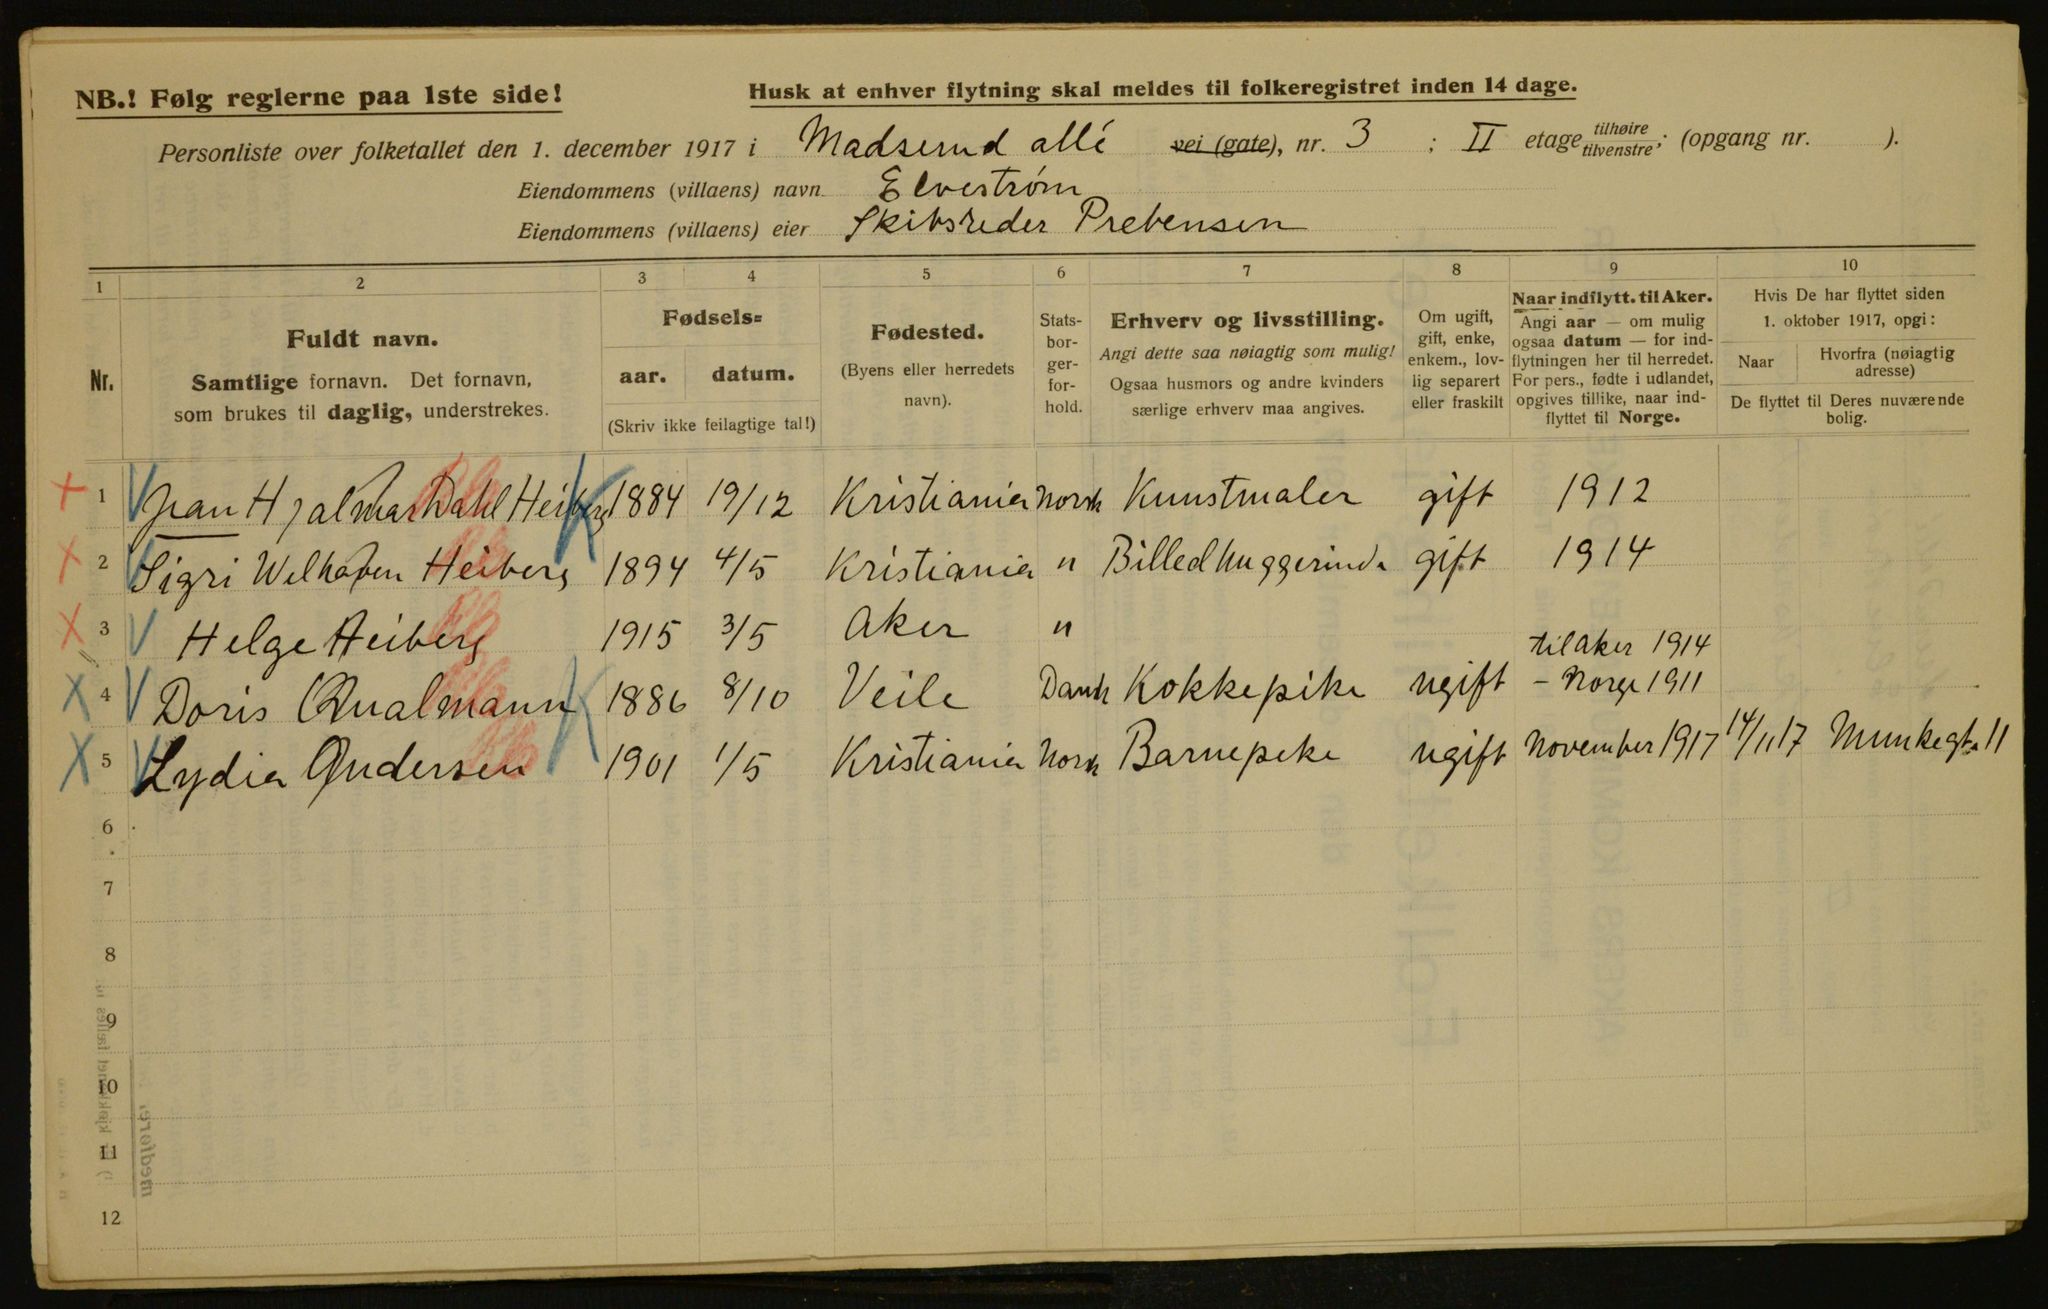 NB.! Følg reglerne paa 1ste side!
Husk at enhver flytning skal meldes til folkeregistret inden 14 dage.
Personliste over folketallet den 1. december 1917 i Madserud allé vei (gate), nr. 3 ; II etage tilhøire tilvenstre; (opgang nr. ).
Eiendommens (villaens) navn Elvestrøm
Eiendommens (villaens) eier Skibsreder Prebensen
1 2 3 4 5 6 7 8 9 10
Nr.
Fuldt navn.
Samtlige fornavn. Det fornavn,
som brukes til daglig, understrekes.
Fødsels=
aar. datum.
(Skriv ikke feilagtige tal!)
Fødested.
(Byens eller herredets
navn).
Stats-
bor-
ger-
for-
hold.
Erhverv og livsstilling.
Angi dette saa nøiagtig som mulig!
Ogsaa husmors og andre kvinders
særlige erhverv maa angives.
Om ugift,
gift, enke,
enkem., lov-
lig separert
eller fraskilt
Naar indflytt. til Aker.
Angi aar — om mulig
ogsaa datum — for ind-
flytningen her til herredet.
For pers., fødte i udlandet,
opgives tillike, naar ind-
flyttet til Norge.
Hvis De har flyttet siden
1. oktober 1917, opgi:
Naar
Hvorfra (nøiagtig
adresse)
De flyttet til Deres nuværende
bolig.
1 Jean Hjalmar Dahl Heiberg 1884 19/12 Kristiania Norsk Kunstmaler gift 1912
2 Sigri Welhaven Heiberg 1894 4/5 Kristiania " Billedhuggerinde gift 1914
3 Helge Heiberg 1915 3/5 Aker "
til Aker 1914
4 Doris Qualmann 1886 8/10 Veile Dansk Kokkepike ugift - Norge 1911
5 Lydia Andersen 1901 1/5 Kristiania Norsk Barnepike ugift November 1917 14/11 17 Munkegt. 11
6
7
8
9
10
11
12